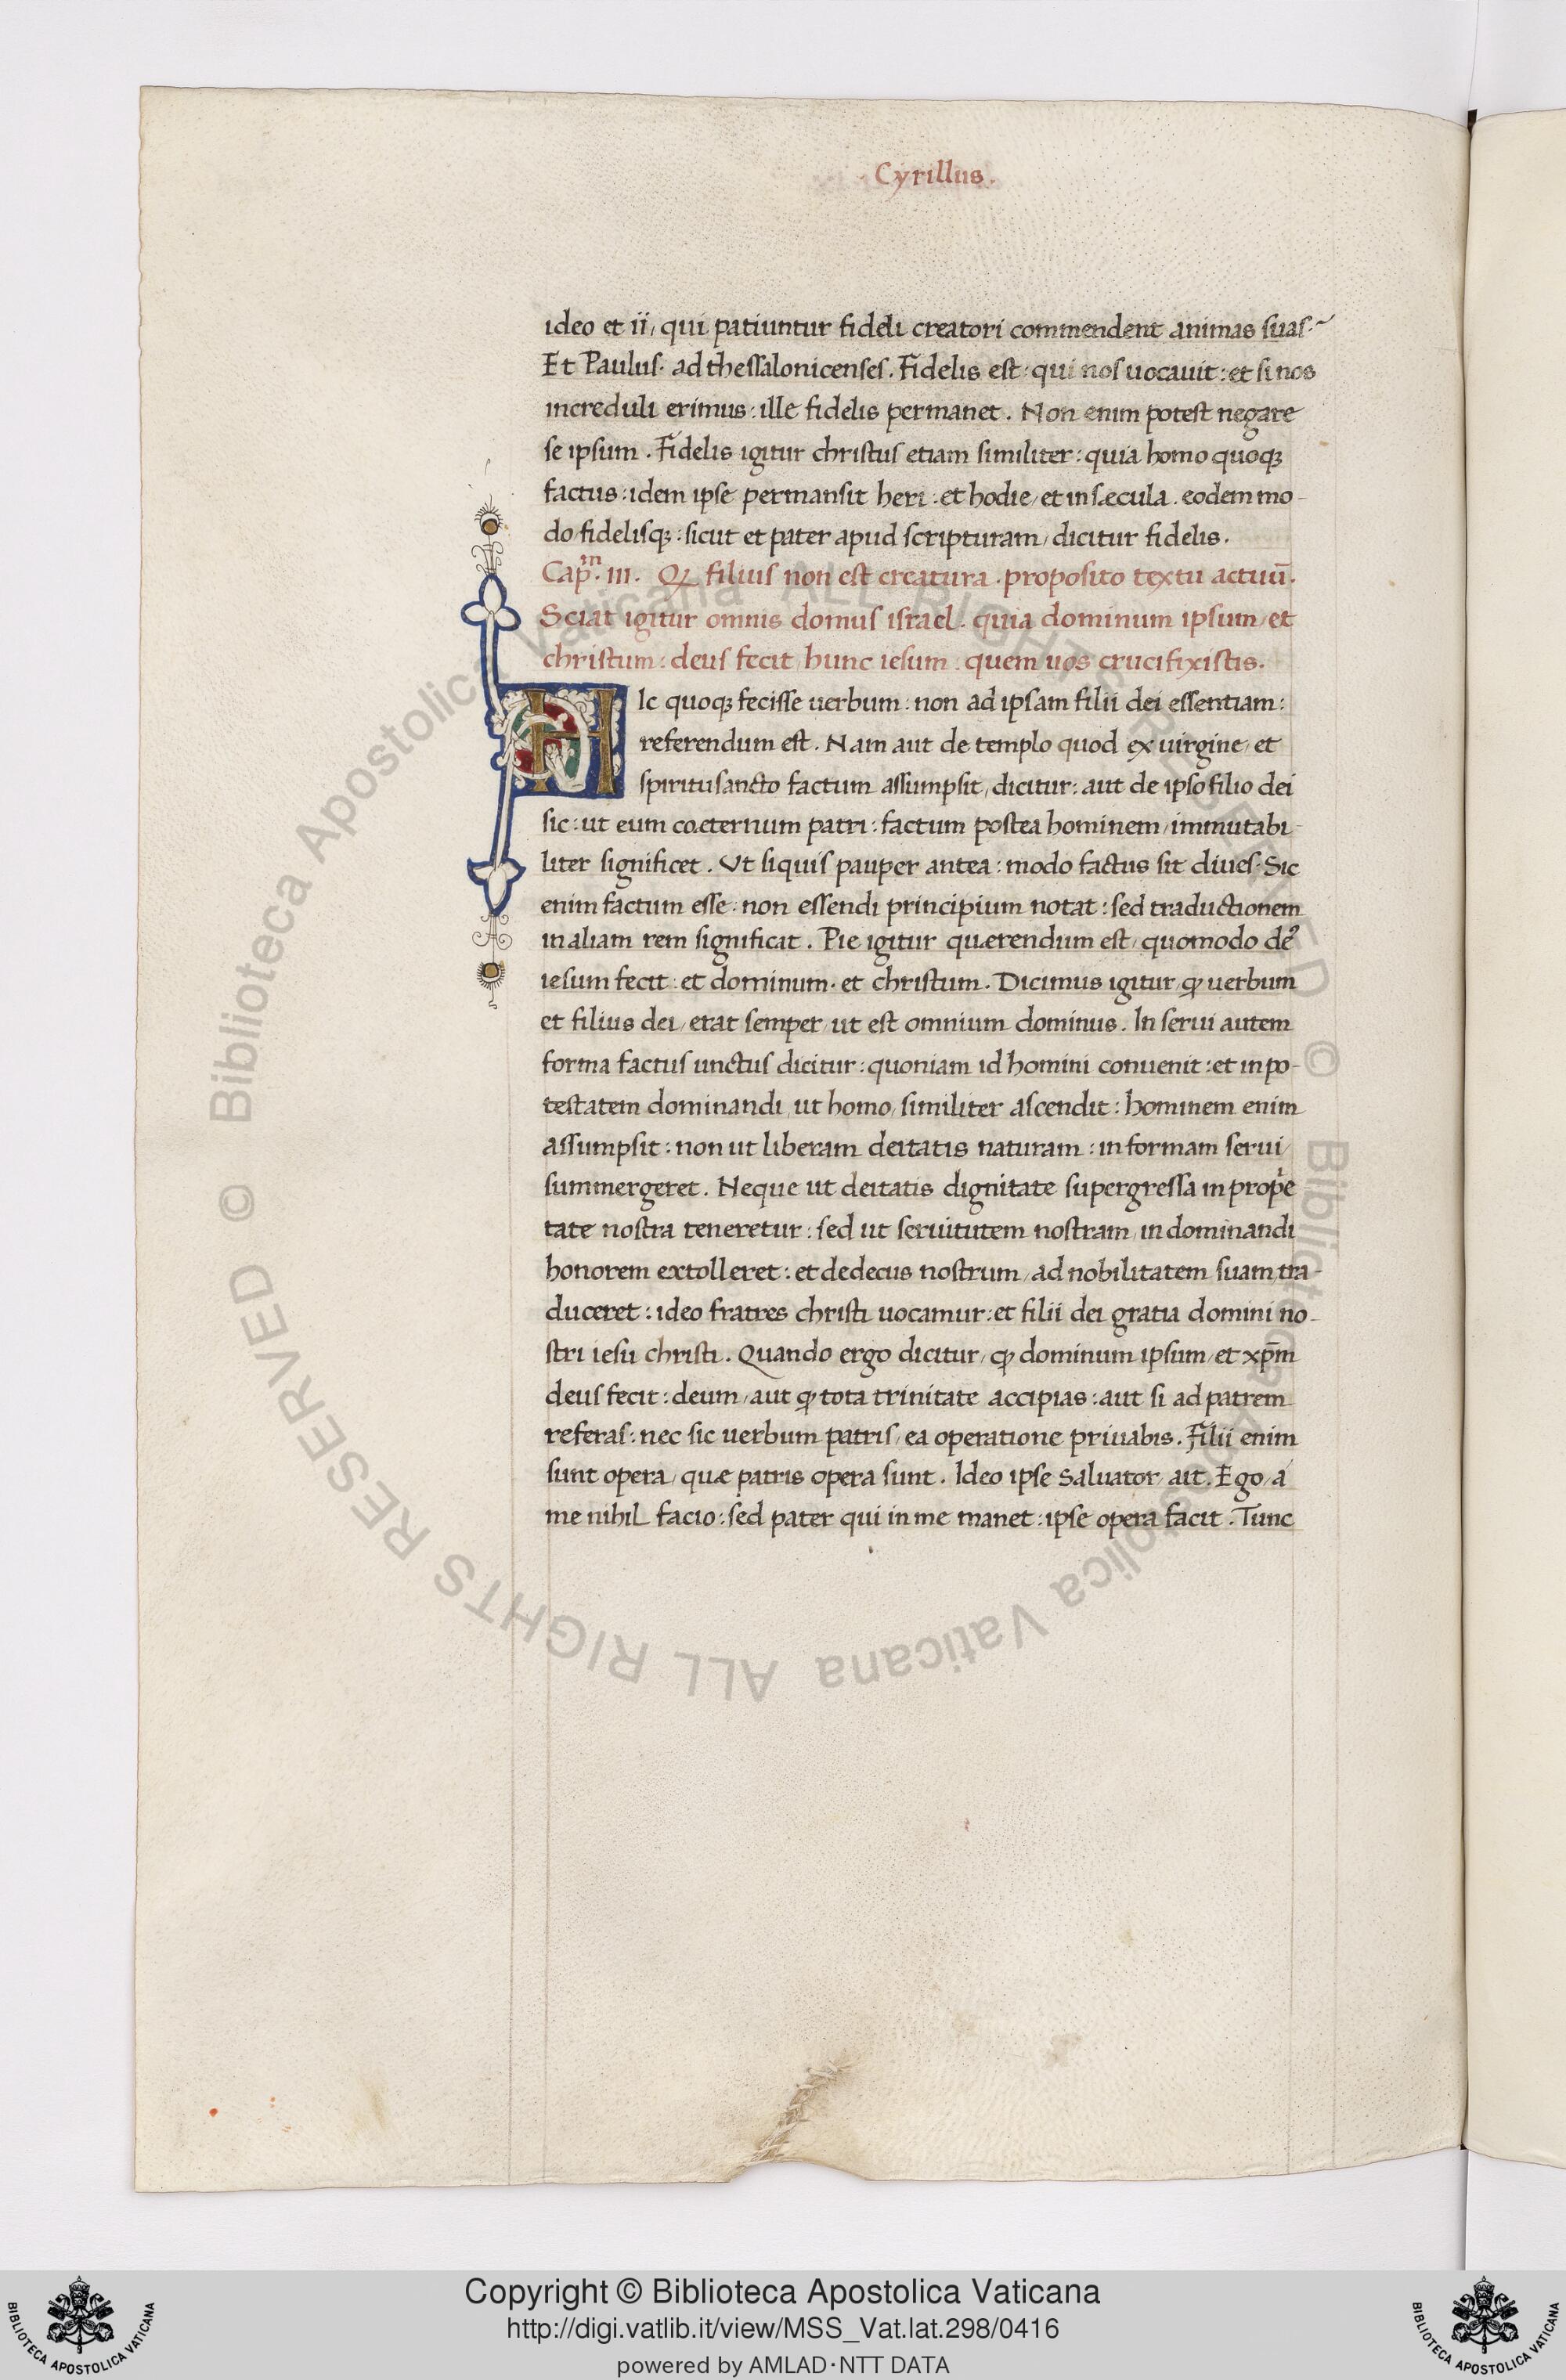 Cyrillus.
ideo et ii, qui patiuntur fideli creatori commendent animas suas.
Et Paulus. ad thessalonicenses. Fidelis est: qui nos uocauit: et si nos
increduli erimus: ille fidelis permanet. Non enim potest negare
se ipsum. Fidelis igitur christus etiam similiter: quia homo quoqꝫ
factus: idem ipse permansit heri: et hodie, et in sæcula. eodem mo-
do, fidelisqꝫ: sicut et pater apud scripturam, dicitur fidelis.
Cap.m III. Qꝫ filius non est creatura. proposito textu actuū.
Sciat igitur omnis domus israel. quia dominum ipsum, et
christum: deus fecit, hunc iesum. quem uos crucifixistis.
HIc quoqꝫ fecisse uerbum: non ad ipsam filii dei essentiam:
referendum est. Nam aut de templo quod ex uirgine, et
spiritusancto factum assumpsit, dicitur: aut de ipso filio dei
sic: ut eum coæternum patri: factum postea hominem, immutabi-
liter significet. Ut siquis pauper antea: modo factus sit diues. Sic
enim factum esse: non essendi principium notat: sed traductionem
in aliam rem significat. Pie igitur quærendum est, quomodo deꝰ
iesum fecit: et dominum. et christum. Dicimus igitur, ꝙ uerbum
et filius dei, erat semper, ut est omnium dominus. In serui autem
forma factus unctus dicitur: quoniam id homini conuenit: et in po-
testatem dominandi, ut homo, similiter ascendit: hominem enim
assumpsit: non ut liberam deitatis naturam: in formam serui,
summergeret. Neque ut deitatis dignitate supergressa in propie
tate nostra teneretur: sed ut seruitutem nostram, in dominandi
honorem extolleret: et dedecus nostrum, ad nobilitatem suam, tra-
duceret: ideo fratres christi uocamur: et filii dei gratia domini no-
stri iesu christi. Quando ergo dicitur, ꝙ dominum ipsum, et xp̄m
deus fecit: deum, aut ꝙ tota trinitate accipias: aut si ad patrem
referas: nec sic uerbum patris, ea operatione priuabis. Filii enim
sunt opera, quæ patris opera sunt. Ideo ipse saluator, ait. Ego, a
me nihil facio: sed pater qui in me manet: ipse opera facit. Tunc
© Biblioteca Apostolica Vaticana ALL RIGHTS RESERVED © Biblioteca Apostolica Vaticana ALL RIGHTS RESERVED
BIBLIOTECA APOSTOLICA VATICANA
Copyright © Biblioteca Apostolica Vaticana
http://digi.vatlib.it/view/MSS_Vat.lat.298/0416
powered by AMLAD·NTT DATA
BIBLIOTECA APOSTOLICA VATICANA